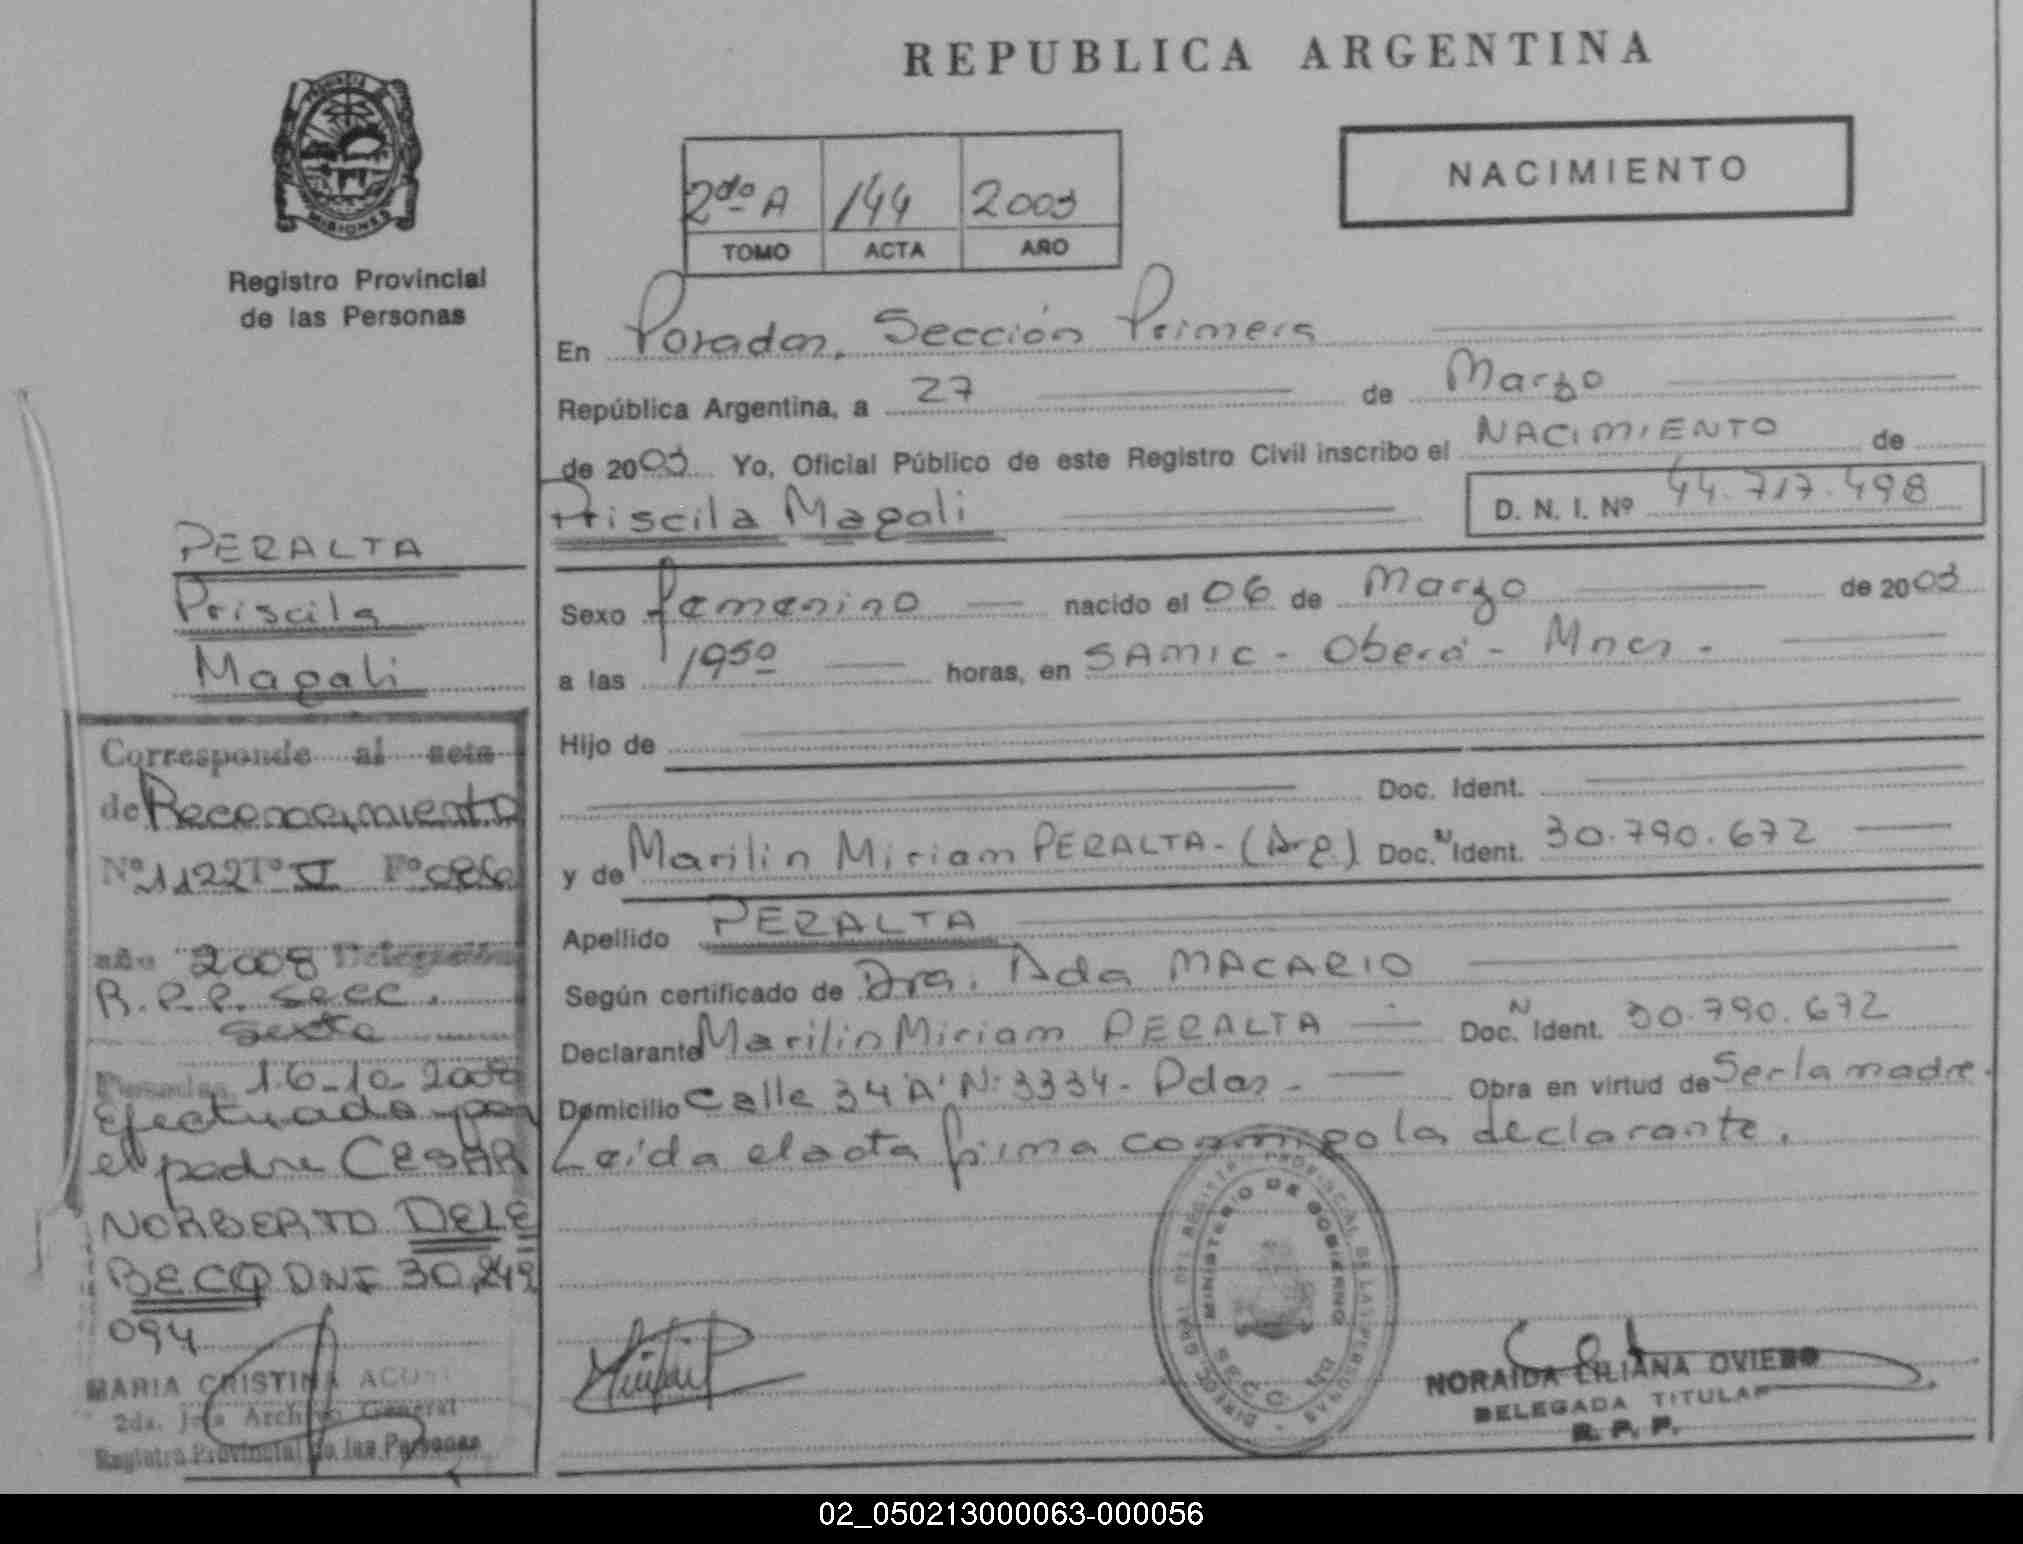 REPUBLICA ARGENTINA
NACIMIENTO
2do A 144 2003
TOMO ACTA AÑO
MISIONES
Registro Provincial
de las Personas
En Posadas, Sección Primera
República Argentina, a 27 de Marzo
de 2003 Yo, Oficial Público de este Registro Civil inscribo el NACIMIENTO de
Priscila Magali D. N. I. Nº 44.717.498
Sexo femenino nacido el 06 de Marzo de 2003
a las 19 50 horas, en SAMIC - Oberá - Mnes -
Hijo de
Doc. Ident.
y de Marilin Miriam PERALTA - (Arg) Doc. N Ident. 30.790.672
Apellido PERALTA
Según certificado de Dra. Ada MACARIO
Declarante Marilin Miriam PERALTA Doc. N Ident. 30.790.672
Domicilio Calle 34 "A" Nº 3334 - Pdas - Obra en virtud de Ser la madre.
Leída el acta firma conmigo la declarante.
PERALTA
Priscila
Magali
Corresponde al acta
de Reconocimiento
Nº 1122 Tº VI Fº 086
año 2008 Delegación
R.P.P. Secc.
Sexta
Posadas, 16-10-2008
Efectuado por
el padre CESAR
NORBERTO DELE
BECQ DNI 30.249
094
MARIA CRISTINA
2da. Jefa Archivo General
Registro Provincial de las Personas
MINISTERIO DE GOBIERNO
NORAIDA LILIANA OVIEDO
DELEGADA TITULAR
R. P. P.
02_050213000063-000056